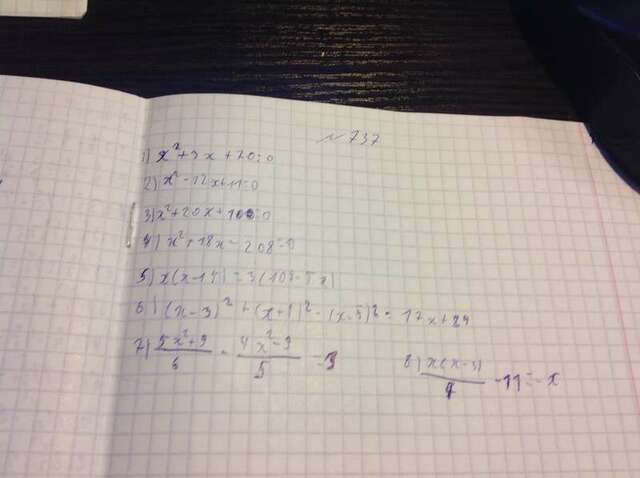 № 737
1) x²+3x+70=0
2) x²-12x+11=0
3) x²+20x+100=0
4) x²+18x-208=0
5) x(x-15)=3(108-5x)
6) (x-3)²+(x+1)²-(x-5)²=17x+24
7) (5x²+9)/6-(4x²-9)/5=3
8) x(x-3)/7-11=-x